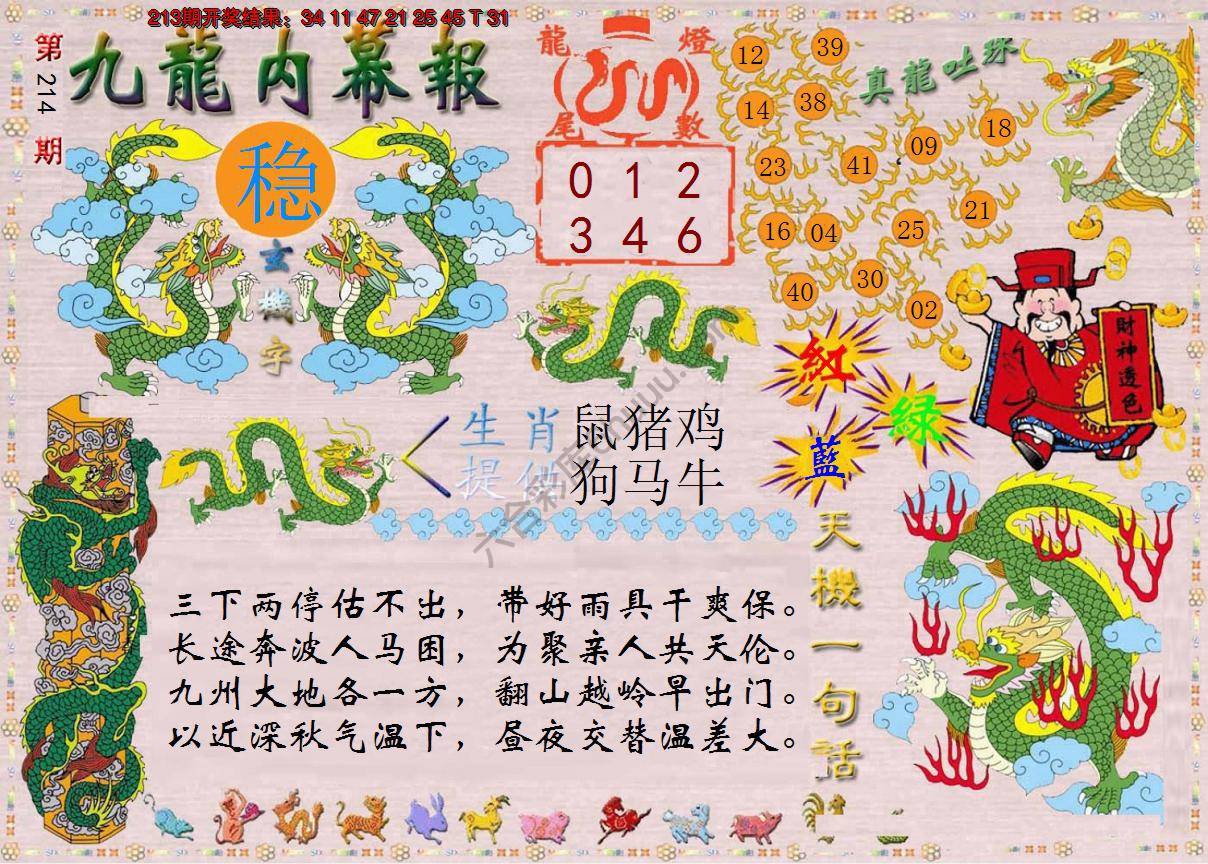 213期开奖结果：34 11 47 21 25 45 T 31
第
214
期
九龍内幕報
稳
玄
機
字
龍燈
尾數
0 1 2
3 4 6
真龍吐珠
12 39
14 38
18
09
23 41
21
16 04 25
30
40
02
財神透色
紅
綠
藍
生肖 鼠猪鸡
提供 狗马牛
三下两停估不出，带好雨具干爽保。
长途奔波人马困，为聚亲人共天伦。
九州大地各一方，翻山越岭早出门。
以近深秋气温下，昼夜交替温差大。
天機一句話